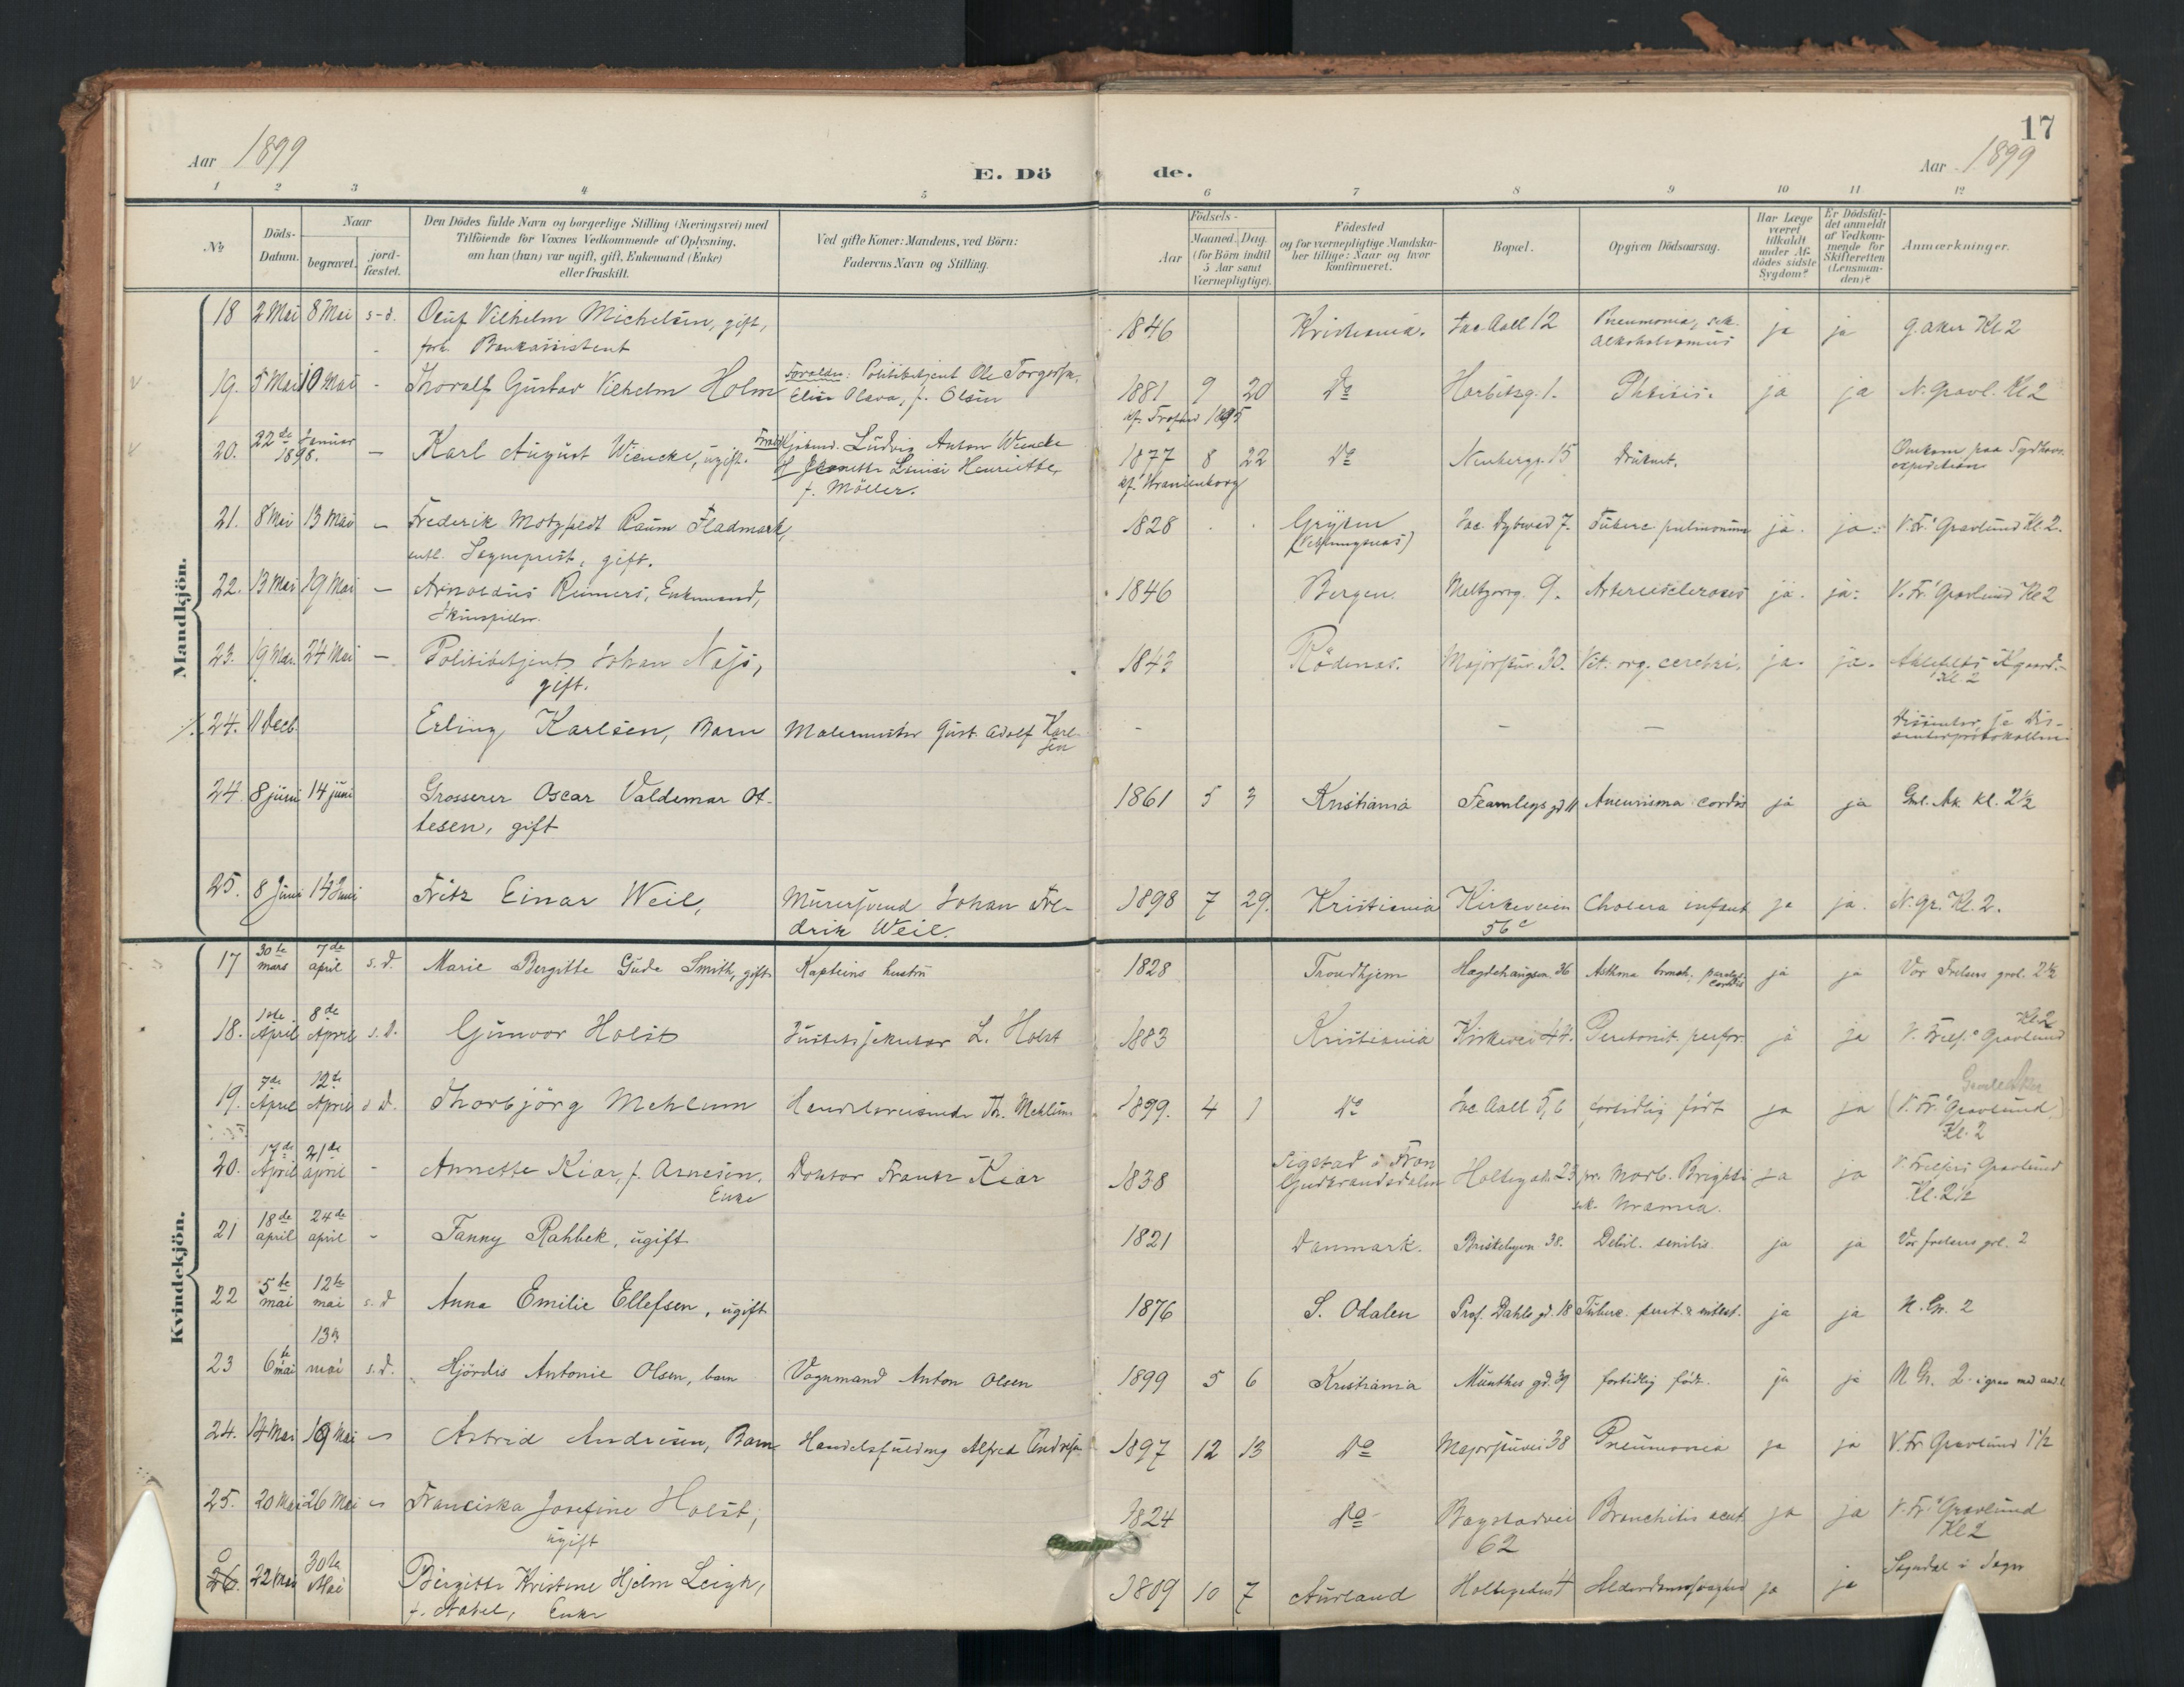 17
Aar 1899
E. Dö de.
Aar 1899
1 2 3 4 5 6 7 8 9 10 11 12
No
Döds-Datum.
Naar
begravet.
jord-fæstet.
Den Dödes fulde Navn og borgerlige Stilling (Næringsvei) med
Tilföiende for Voxnes Vedkommende af Oplysning,
om han (hun) var ugift, gift, Enkemand (Enke)
eller fraskilt.
Ved gifte Koner: Mandens, ved Börn:
Faderens Navn og Stilling.
Födsels-
Aar
Maaned. Dag.
(for Börn indtil
5 Aar samt
Værnepligtige).
Födested
og for værnepligtige Mandska-
ber tillige: Naar og hvor
konfirmeret.
Bopæl.
Opgiven Dödsaarsag.
Har Læge
været
tilkaldt
under Af-
dödes sidste
Sygdom?
Er Dödsfal-
det anmeldt
af Vedkom-
mende for
Skifteretten
(Lensman-
den)?
Anmærkninger.
Mandkjön.
18 2 Mai 8 Mai s-d. Oluf Vilhelm Michelsen, gift, 1846 Kristiania. Jac Aall 12 Pneumonia, sek. ja ja g. aker Kl 2
forh. Bankassistent alkoholismus
19. 5 Mai 10 Mai - Thoralf Gustav Vilhelm Holm Forældre: Politibetjent Ole Torgersen 1881 9 20 Do Harbitzg. 1. Phtisis. ja ja N. Gravl. Kl 2
Elise Olava, f. Olsen 1895
20. 22de Januar 1898. - Karl August Wiencke, ugift. Ludvig Anton Wiencke 1877 8 22 Do Neubergg. 15 Druknet. Omkom paa Sydhavs-
Jeanette Louise Henriette, kf. Uranienborg expedition
f. Möller.
21. 8 Mai 13 Mai - Frederik Motzfeldt Raum Fladmark, 1828 Gryten Jac Dybwad 7. Tuberc pulmonum ja. ja. V. Fr. Gravlund Kl. 2.
entl. Sogneprest, gift. (Veblungsnes)
22. 13 Mai 19 Mai - Arnoldus Reimers, Enkemand, 1846 Bergen. Meltzersg. 9. Arteriosclerosis ja. ja. V. Fr. Gravlund Kl 2
Skuespiller.
23. 19 Mai. 24 Mai - Politibetjent Johan Næss, 1843 Rödenæs. Majorstuv. 30. Vit. org. cerebri. ja. ja. Kl. 2
gift.
24. 11 Decb. Erling Karlsen, Barn Malermester Gust. Adolf Karl- - - - Dissenter, se Dis-
sen senterprotokollen
24 8 juni 14 juni Grosserer Oscar Valdemar Ot- 1861 5 3 Kristiania Fearnleys gd 11 Aneurisma cordis ja ja Gml. Ak kl. 2½
tesen, gift
25. 8 Juni 14 Juni Fritz Einar Weil, Murersvend Johan Fre- 1898 7 29. Kristiania Kirkeveien Cholera infant ja ja. N. gr. Kl. 2.
drik Weil. 56 c
Kvindekjön.
17 30te mars 7de april s.d. Marie Bergitte Gude Smith, gift Kapteins hustru 1828 Trondhjem Hægdehaugsv. 36 Asthma bronch, paralys. cordis ja ja Vor Frelsers grvl. 2½
18. 1ste April 8de April s.d. Gunvor Holst Justitssekretær L. Holst 1883 Kristiania Kirkevei 44. Peritonit. perfor. ja ja V. Frels. Gravlund Kl. 2
19. 7de April 12te April s d. Thorbjörg Mehlum Handelsreisende Th. Mehlum 1899. 4 1 Do Jac Aall G, 6 fortidlig födt ja ja Gamle Aker
(V. Fr. Gravlund)
Kl. 2
20. 17de April 21de april - Annette Kiær, f. Arnesen. Doktor Frantz Kiær 1838 Sigstad i Fron Holtegad. 23 pr. Morb. Brightii ja ja V. Frelsers Gravlund
Enke Gudbrandsdalen sek. Uræmia. Kl. 2½
21 18de april 24de april - Fanny Rahbek, ugift 1821 Danmark. Briskebyvn 38. Debil. senilis ja ja Vor frelsers grl. 2
22 5te mai 12te mai s.d Anna Emilie Ellefsen, ugift 1876 S. Odalen Prof. Dahls gd. 18 Tuberc. perit. & intest. ja ja N. Gr. 2
23 6te mai 13de mai s.d. Hjördis Antonie Olsen, barn Vognmand Anton Olsen 1899 5 6 Kristiania Munthes gd. 39 fortidlig födt. ja ja N Gr. 2 i grav med
24. 14 Mai 19 Mai - Astrid Andresen, Barn Handelsfuldmg Alfred Andresen 1897 12 13 Do Majorstuvei 38 Pneumonia ja ja V. Fr Gravlund 1½
25. 20 Mai 26 Mai - Franciska Josefine Holst, 1824 Do Bogstadvei Bronchitis acut ja ja V. Fr. Gravlund
ugift 62 Kl 2
26. 22 Mai 30te Mai Birgitte Kristine Hjelm Leigh, 1809 10 7 Aurland Holtegaden 4 Alderdomssvaghed ja ja Sogndal i Sogn
Enke